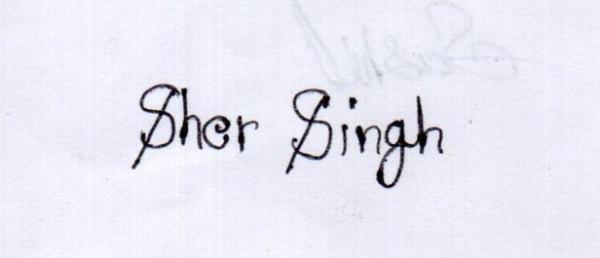 Sher Singh